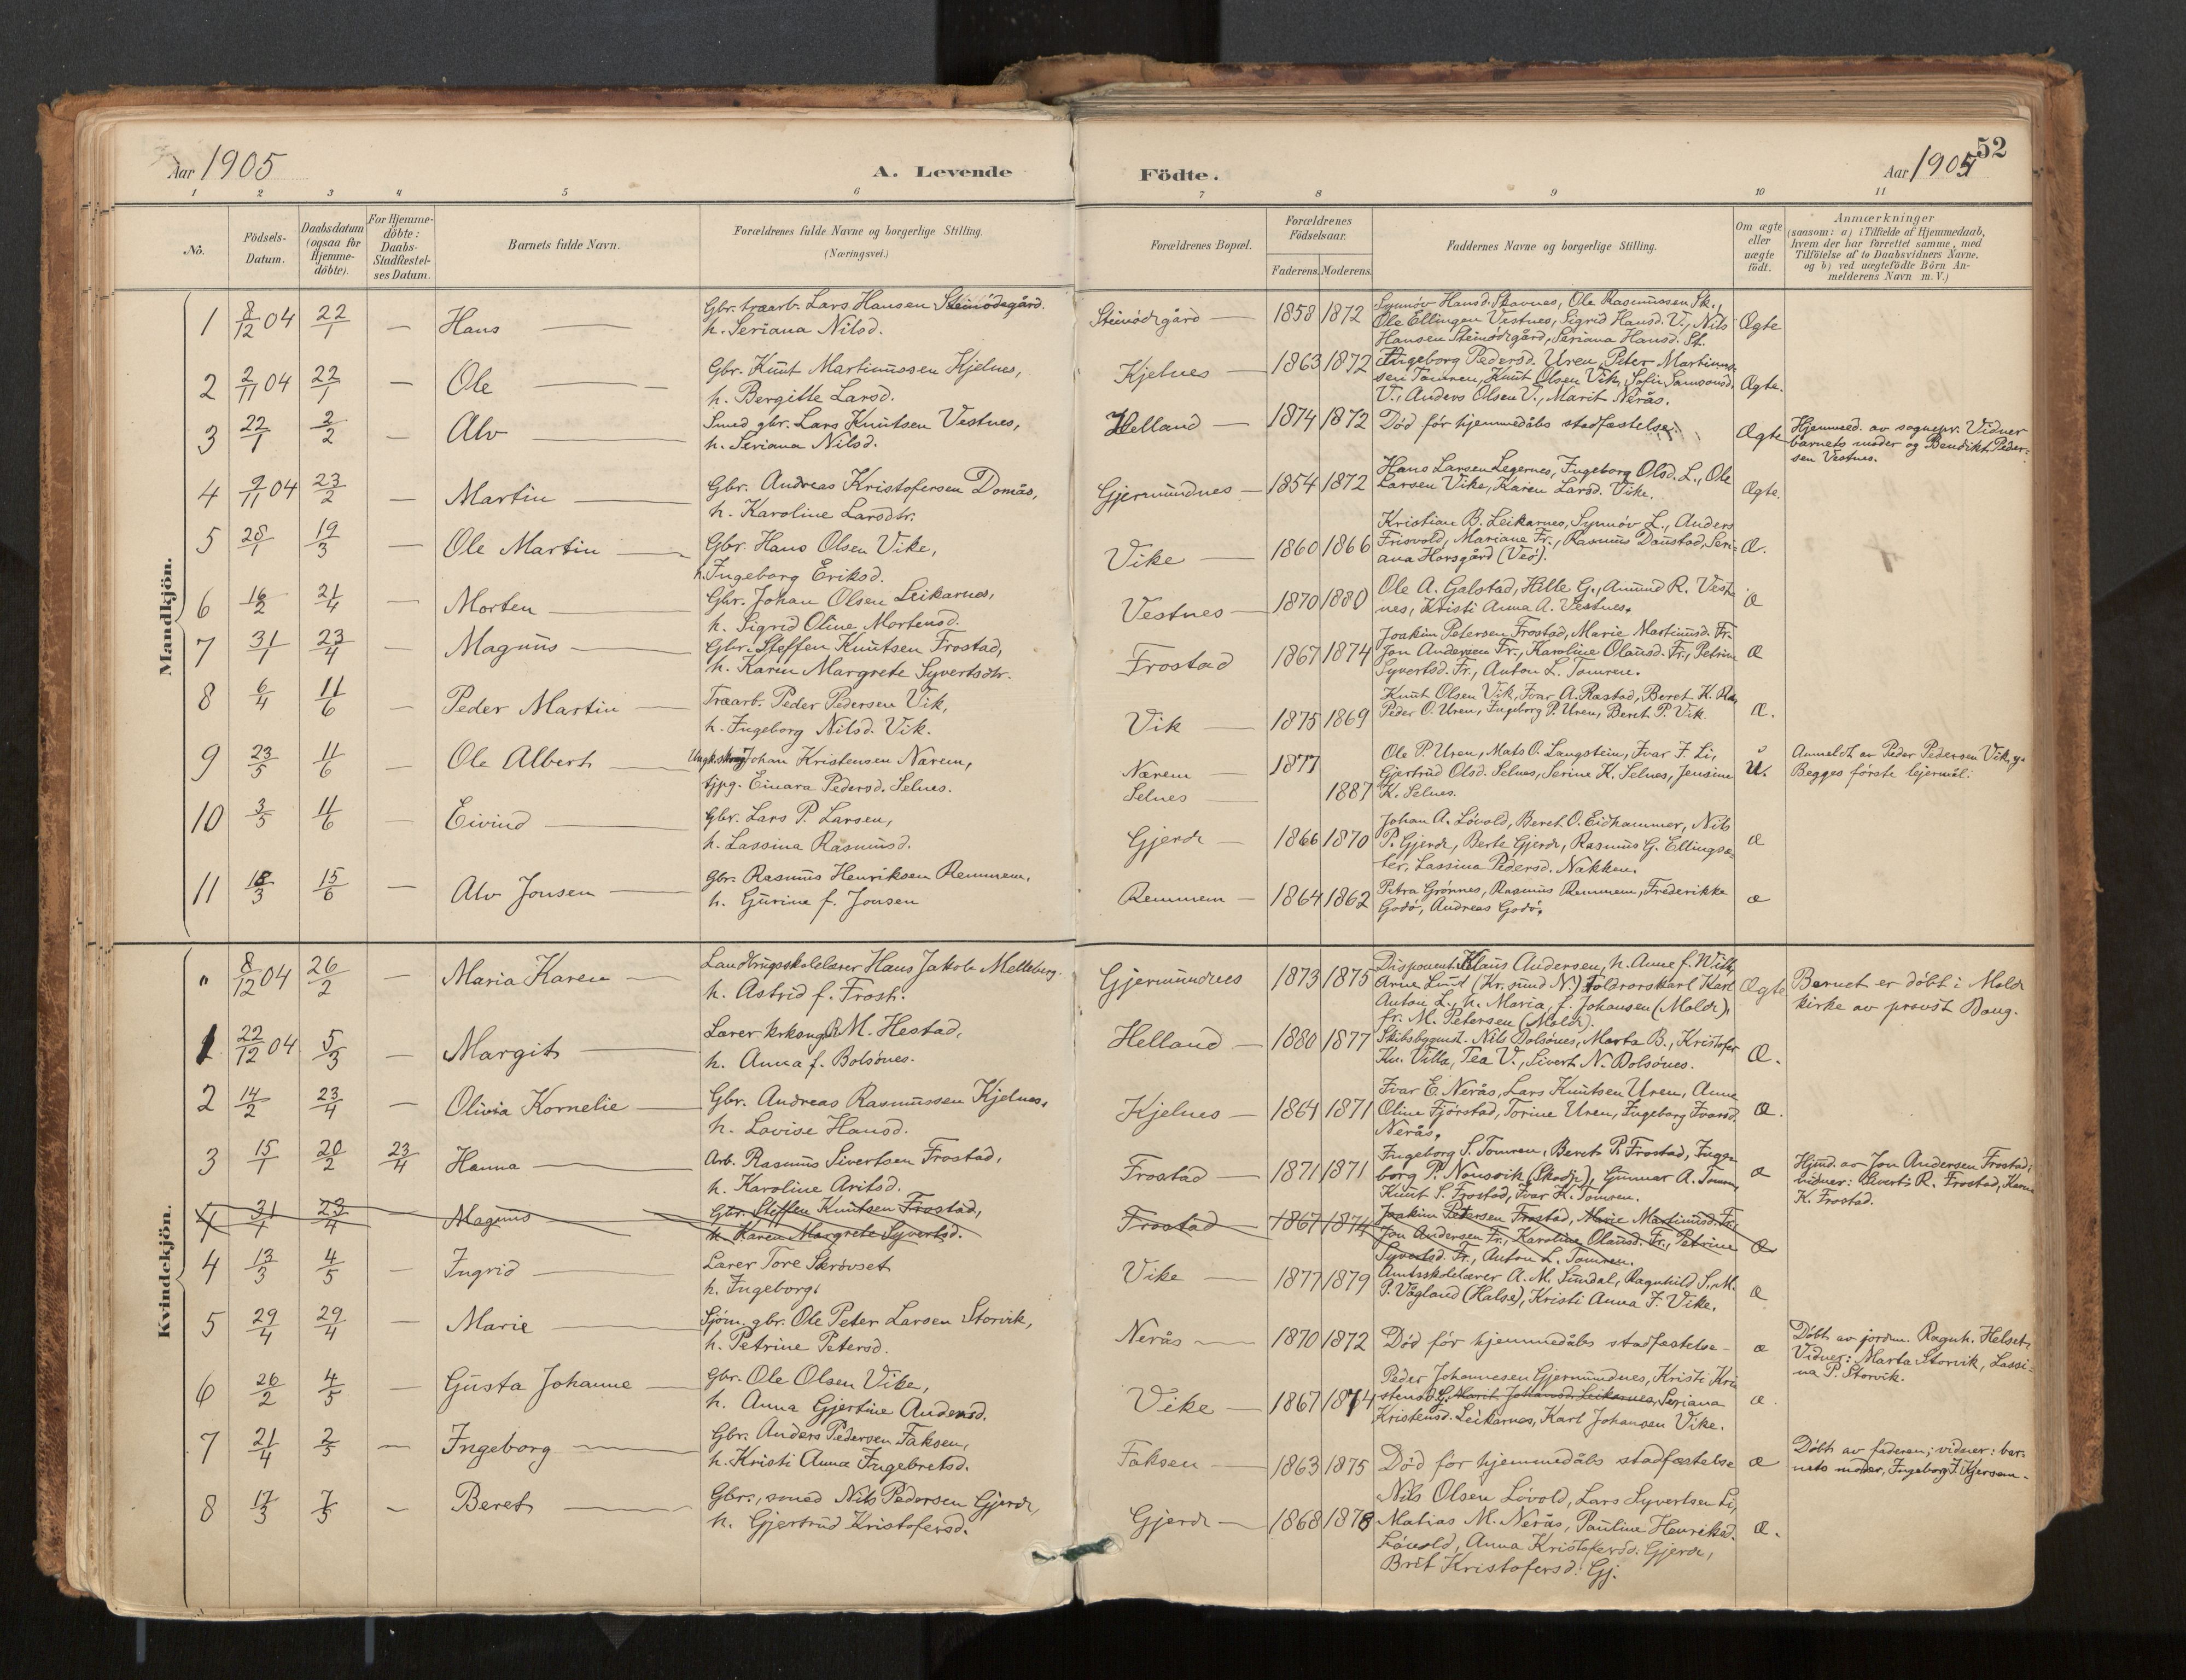 Aar 1905
A. Levende
Födte.
Aar 1905
52
1 2 3 4 5 6 7 8 9 10 11
No.
Födsels-Datum.
Daabsdatum (ogsaa for Hjemme-döbte).
For Hjemme-döbte: Daabs-Stadfæstel-ses Datum.
Barnets fulde Navn.
Forældrenes fulde Navne og borgerlige Stilling.
(Næringsvei.)
Forældrenes Bopæl.
Forældrenes Födselsaar.
Faderens. Moderens.
Faddernes Navne og borgerlige Stilling.
Om ægte eller uægte födt.
Anmærkninger
(saasom: a) i Tilfælde af Hjemmedaab,
hvem der har forrettet samme, med
Tilföielse af to Daabsvidners Navne.
og b) ved uægtefödte Börn An-
melderens Navn m. V.)
Mandkjön.
1 8/12 04 22/1 — Hans — Gbr. træarb. Lars Hansen Steinödegård.
h. Seriana Nilsd.
Steinödegård — 1858 1872 Synnöv Hansd. Stavnes, Ole Rasmussen St.,
Ole Ellingsen Vestnes, Sigrid Hansd. V., Nils
Hansen Steinödegård, Seriana Hansd. St.
Ægte
2 2/11 04 22/1 — Ole — Gbr. Knut Martinussen Kjelnes,
h. Bergitte Larsd.
Kjelnes — 1863 1872 Ingeborg Pedersd. Uren, Peter Martinus-
sen Tomren, Knut Olsen Vik, Sofie Samsonsd.
V., Anders Olsen V., Marit Nerås.
Ægte.
3 22/1 2/2 — Alv — Smed gbr. Lars Knutsen Vestnes,
h. Seriana Nilsd.
Helland — 1874 1872 Död för hjemmedåbs stadfæstelse.
Ægte
Hjemmed. av sognepr. Vidner
barnets moder og Bendikt Peder-
sen Vestnes.
4 9/11 04 23/2 — Martin — Gbr. Andreas Kristofersen Domås,
h. Karoline Larsdtr.
Gjermundnes — 1854 1872 Hans Larsen Legernes, Ingeborg Olsd. L., Ole
Larsen Vike, Karen Larsd. Vike.
Ægte.
5 28/1 19/3 — Ole Martin — Gbr. Hans Olsen Vike,
h. Ingeborg Eriksd.
Vike — 1860 1866 Kristian B. Leikarnes, Synnöv L., Anders
Frisvold, Mariane Fr., Rasmus Daustad, Seri-
ana Horsgård (Veö).
Æ.
6 16/2 21/4 — Morten — Gbr. Johan Olsen Leikarnes,
h. Sigrid Oline Mortensd.
Vestnes — 1870 1880 Ole A. Galstad, Hille G., Amund R. Vest-
nes, Kristi Anna A. Vestnes.
æ
7 31/1 23/4 — Magnus — Gbr. Steffen Knutsen Frostad,
h. Karen Margrete Syvertsdtr.
Frostad 1867 1874 Joakim Petersen Frostad, Marie Martinusd. Fr.
Jon Andersen Fr., Karoline Olausd. Fr., Petrine
Syvertsd. Fr., Anton L. Tomren.
Æ
8 6/4 11/6 — Peder Martin — Træarb. Peder Pedersen Vik,
h. Ingeborg Nilsd. Vik.
Vik — 1875 1869 Knut Olsen Vik, Ivar A. Rastad, Beret K.
Peder O. Uren, Ingeborg P. Uren, Beret P. Vik
Æ.
9 23/5 11/6 — Ole Albert — Johan Kristensen Nærem,
tjpg. Einara Pedersd. Selnes.
Nærem — 1877
Selnes — 1887
Ole P. Uren, Mats O. Langstein, Ivar J. Li,
Gjertrud Olsd. Selnes, Serine K. Selnes, Jensine
K. Selnes.
U.
Anmeldt av Peder Pedersen Vik,
Begges förste lejermål.
10 3/5 11/6 — Eivind — Gbr. Lars P. Larsen,
h. Lassina Rasmusd.
Gjerde — 1866 1870 Johan A. Lövold, Beret O. Eidhammer, Nils
P. Gjerde, Berte Gjerde, Rasmus G. Ellingsæ-
ter, Lassina Pedersd. Nakken.
æ
11 18/3 15/6 — Alv Jonsen — Gbr. Rasmus Henriksen Remmem,
h. Gurine f. Jonsen
Remmem — 1864 1862 Petra Grönnes, Rasmus Remmem, Frederikke
Godö, Andreas Godö.
æ
Kvindekjön.
" 8/12 04 26/2 — Maria Karen — Landbrugsskolelærer Hans Jakob Melteberg.
h. Astrid f. Frost.
Gjermundnes 1873 1875 Disponent Klaus Andersen, h. Anne f. With,
Arne Lund (Kr.sund N.) Toldrorskarl Karl
Anton L., h. Maria, f. Johansen (Molde),
fr. M. Petersen (Molde).
Ægte
Barnet er döbt i Molde
kirke av provst Daug.
1 22/12 04 5/3 — Margit — Lærer krksang. O. M. Hestad,
h. Anna f. Bolsönes.
Helland — 1880 1877 Skibsbygmst. Nils Bolsönes, Marta B., Kristofer
Kn. Villa, Tea V., Sivert N. Bolsönes.
Æ.
2 14/2 23/4 — Olivia Kornelie — Gbr. Andreas Rasmussen Kjelnes,
h. Lovise Hansd.
Kjelnes — 1864 1871 Ivar E. Nerås, Lars Knutsen Uren, Anne
Oline Fjörstad, Torine Uren, Ingeborg Ivarsd.
Nerås.
Æ.
3 15/1 20/2 23/4 Hanna — Arb. Rasmus Sivertsen Frostad,
h. Karoline Aritsd.
Frostad — 1871 1871 Ingeborg S. Tomren, Berit P. Frostad, Inge-
borg P. Nonsvik (Skodje), Gunnar A. Tomren,
Knut S. Frostad, Ivar K. Tomren.
æ
Hjmd. av Jon Andersen Frostad;
vidner: Sivert R. Frostad, Karen
K. Frostad.
4 31/1 23/4 Magnus Gbr. Steffen Knutsen Frostad,
h. Karen Margrete Syvertsd.
Frostad 1867 1874 Joakim Petersen Frostad, Marie Martinusd. Fr.
Jon Andersen Fr., Karoline Olausd. Fr., Petrine
Syvertsd. Fr., Anton L. Tomren.
æ
4 13/3 4/5 — Ingrid — Lærer Tore Skrövset
h. Ingeborg.
Vike — 1877 1879 Amtsskolelærer A. M. Sundal, Ragnhild S., M.
P. Vågland (Halse), Kristi Anna J. Vike.
æ
5 29/4 29/4 — Marie — Sjöm. gbr. Ole Peter Larsen Storvik,
h. Petrine Petersd.
Nerås — 1870 1872 Död för hjemmedåbs stadfæstelse —
æ
Döbt av jordm. Ragnh. Helset,
Vidner: Marta Storvik, Lassi-
na P. Storvik.
6 26/2 4/5 — Gusta Johanne — Gbr. Ole Olsen Vike,
h. Anna Gjertine Andersd.
Vike — 1867 1874 Peder Johannesen Gjermundnes, Kristi Kri-
stensd. G. Marit Johansd. Leikarnes, Seriana
Kristensd. Leikarnes, Karl Johansen Vike.
æ.
7 21/4 2/5 — Ingeborg — Gbr. Anders Pedersen Faksen,
h. Kristi Anna Ingebretsd.
Faksen — 1863 1875 Död for hjemmedåbs stadfæstelse
æ
Döbt av faderen; vidner: bar-
nets moder, Ingeborg J. Kjersem.
8 17/3 7/5 — Beret — Gbr., smed Nils Pedersen Gjerde,
h. Gjertrud Kristofersd.
Gjerde — 1868 1878 Nils Olsen Lövold, Lars Syvertsen Li,
Matias M. Nerås, Pauline Henriksd.
Lövold, Anna Kristofersd. Gjerde,
Brit Kristofersd. Gj.
æ.